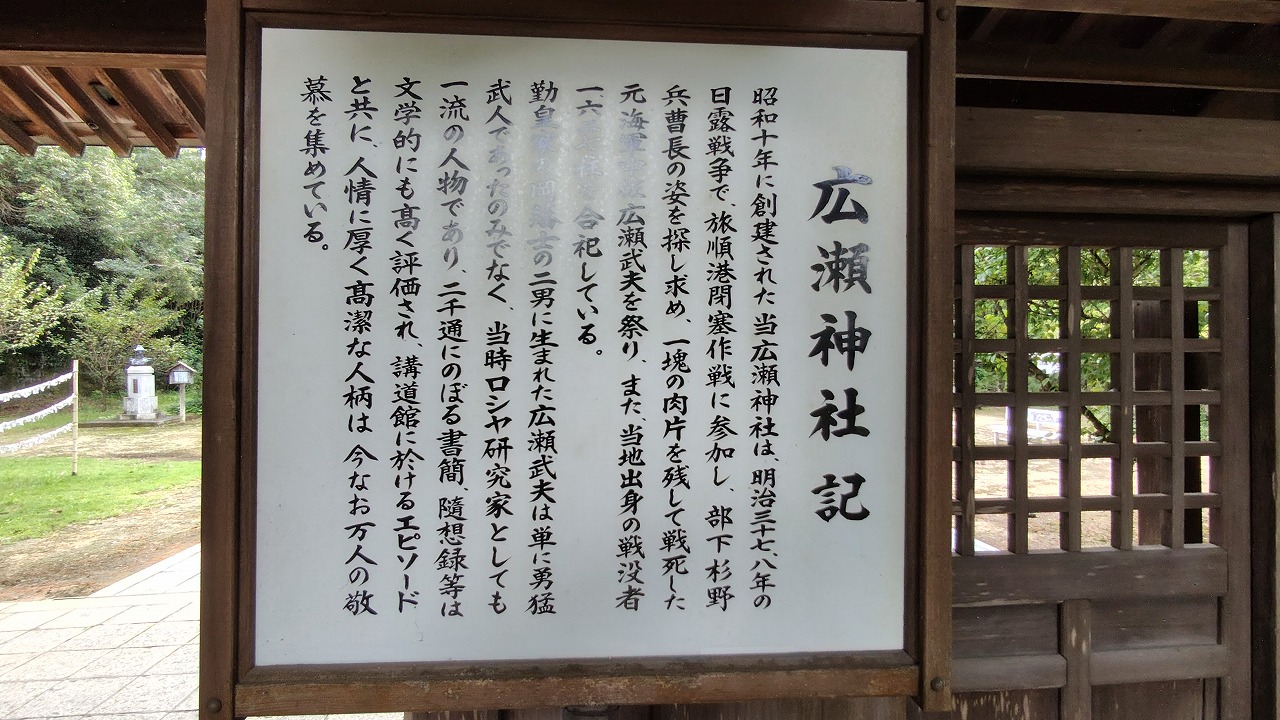 広瀬神社記
昭和十年に創建された当広瀬神社は、明治三十七、八年の
日露戦争で、旅順港閉塞作戦に参加し、部下杉野
兵曹長の姿を探し求め、一塊の肉片を残して戦死した
元海軍 広瀬武夫を祭り、また、当地出身の戦没者
一六 合祀している。
勤皇 の二男に生まれた広瀬武夫は単に勇猛
武人であったのみでなく、当時ロシヤ研究家としても
一流の人物であり、二千通にのぼる書簡、随想録等は
文学的にも高く評価され、講道館に於けるエピソード
と共に、人情に厚く高潔な人柄は今なお万人の敬
慕を集めている。